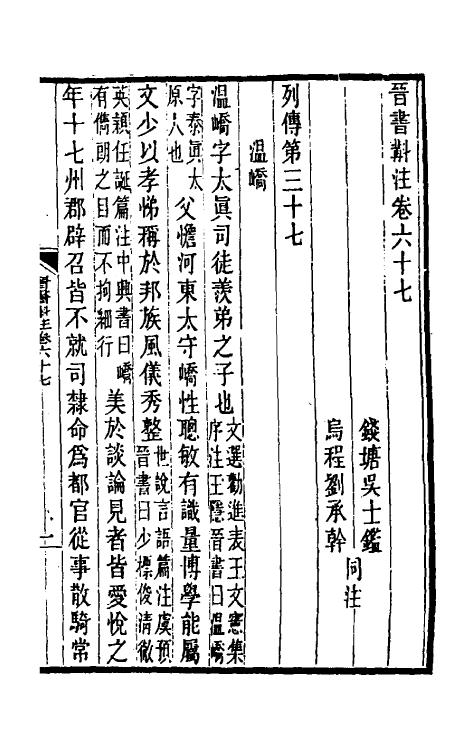 晉書斠注卷六十七
錢塘吳士鑑
烏程劉承幹
同注
列傳第三十七
溫嶠
溫嶠字太眞司徒羨弟之子也文選勸進表王文憲集序注王隱晉書曰溫嶠
字泰眞太原人也父憺河東太守嶠性聰敏有識量博學能屬
文少以孝悌稱於邦族風儀秀整世說言語篇注虞預晉書曰少標俊清徹
英穎任誕篇注中興書曰嶠有儁朗之目而不拘細行美於談論見者皆愛悅之
年十七州郡辟召皆不就司隸命爲都官從事散騎常
晉書斠注卷六十七
一